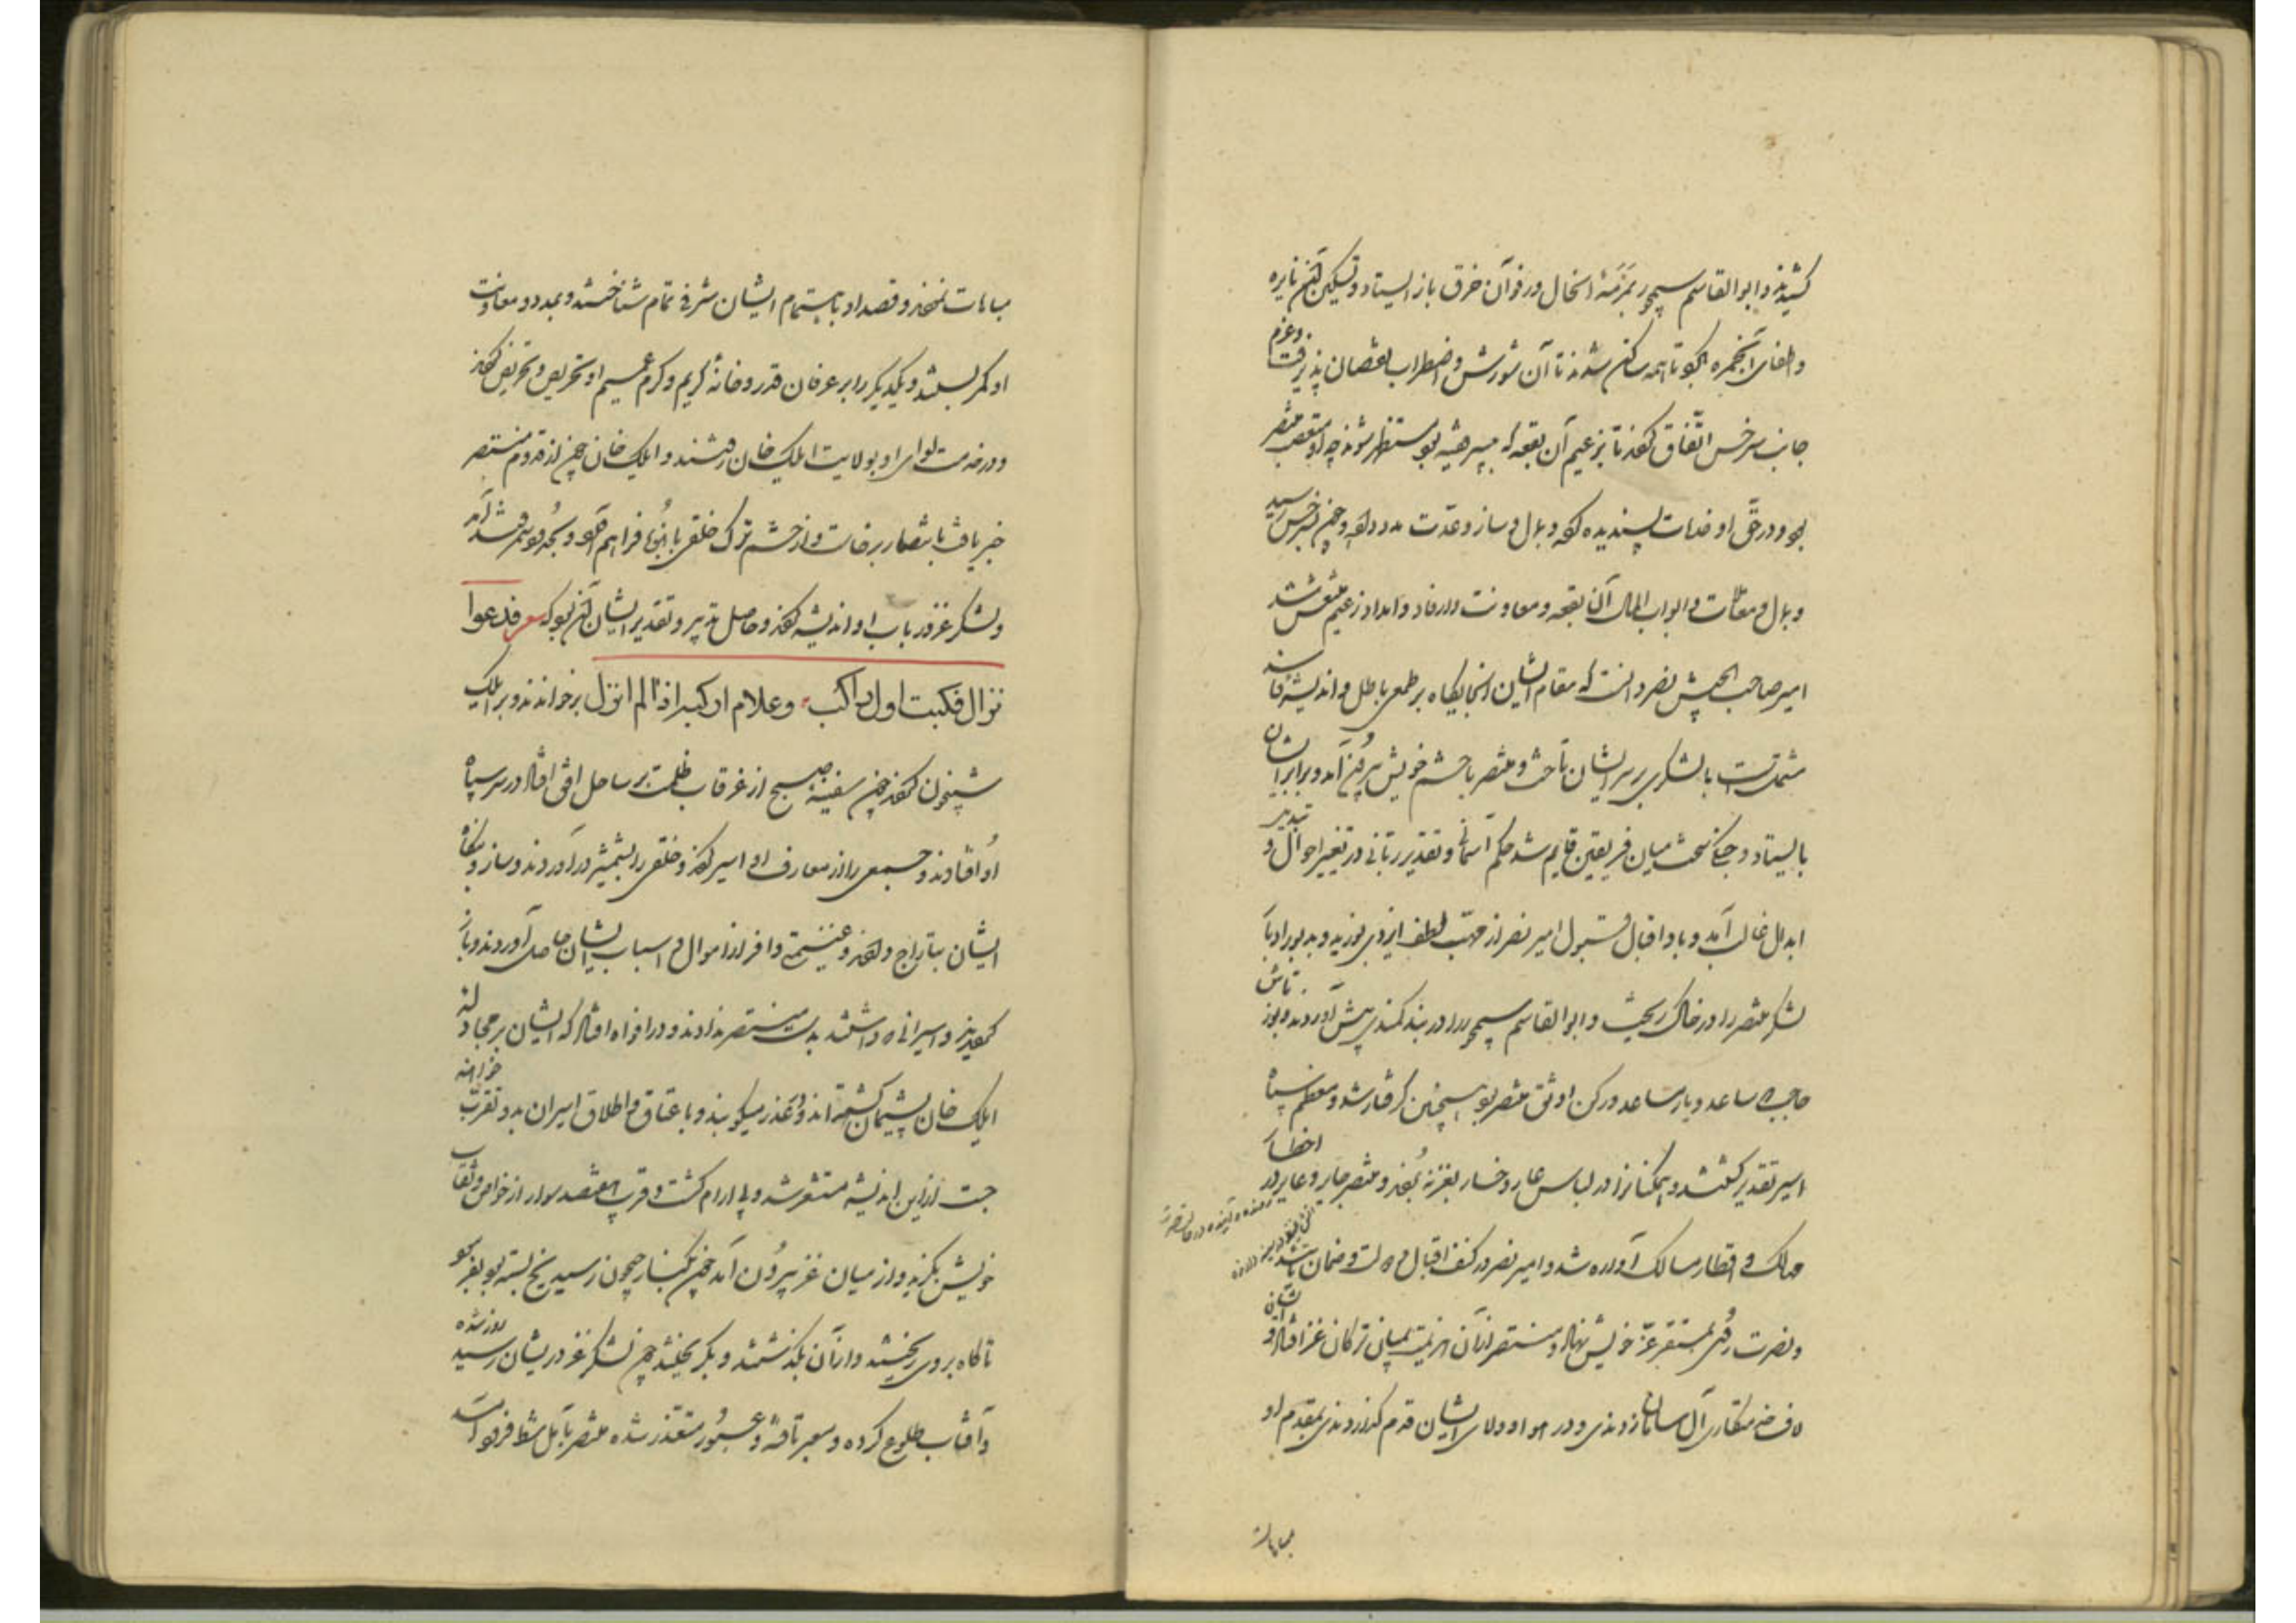 کشیدند و ابوالقاسم سیمجور بمرمّهٔ انحال و رفو آن خرق باز ایستاد و تسکین آن نایره
و اطفای آن جمره بکرد تا همه ساکن شدند تا آن شورش و اضطراب نقصان پذیرفت و عزم
جانب سرخس اتّفاق کردند تا بزعیم آن بقعه که پسر فقیه بود مستظهر شوند چه او متعصب منتصر
بود و در حق او خدمات پسندیده کرده و بمال و ساز و عدّت مدد داده و چون بسرخس رسید
و بمال و معاملات و ابواب المال آن بقعه و معاونت و ارفاد و امداد زعیم منتعش شد
امیر صاحب الجیش نصر دانست که مقام ایشان انجایگاه بر طمعی باطل و اندیشهٔ فاسد
مشتمل است با لشکری بر سر ایشان تاخت و منتصر با حشم خویش بیرون آمد و برابر ایشان
بایستاد و جنگ سخت میان فریقین قایم شد حکم آسمانی و تقدیر ربانی در تغییر احوال و تبدیر
ابدال غالب آمد و باد اقبال و قبول امیر نصر از مهبّ لطف ایزدی بوزید و بدبور ادبار
لشکر منتصر را در خاک ریخت و ابوالقاسم سیمجور را در بند کمند پیش آوردند و توز تاش
حاجب که ساعد و یار مساعد و رکن اوثق منتصر بود همچنین گرفتار شد و معظم سپاه
اسیر تقدیر گشتند و همگنانرا در لباس عار و خسار بغزنه بردند و منتصر حایر و عایر در اخطار
ممالک و اقطار مسالک آواره شد و امیر نصر در کنف اقبال و دولت و ضمان
و نصرت روی بمستقر عزّ خویش نهاد و منتصر از آن هزیمت بمیان ترکان غز افتاد و ایشان
لاف خدمتکاری آل سامان زدندی و در هوا و ولای ایشان قدم گذاردندی بمقدم او
مباهات
مباهات نمودند و قصد او باهتمام ایشان شرفی تمام شناختند و بمدد و معاونت
او کمر بستند و یکدیگر را بر عرفان قدر و خانهٔ کریم و کرم عمیم او تحریص و تحریض کردند
و در خدمت لوای او بولایت ایلک خان رفتند و ایلک خان چون از قدوم منتصر
خبر یافت بانتصار برخاست و از حشم ترک خلقی بانبوه فراهم آورد و بحدود سمرقند آمد
و لشکر غز در باب او اندیشه کردند و حاصل تدبیر و تقدیر ایشان آن بود که شعر فدعوا
نزال فکنت اول راکب و علام ارکبه اذا لم انزل برخواندند و بر ایلک
شبیخون کردند چون سفینهٔ صبح از غرقاب ظلمت بر ساحل افق افتاد در سر سپاه
او افتادند و جمعی را از معارف او اسیر کردند و خلقی را بشمشیر درآوردند و ساز و بنگاه
ایشان بتاراج دادند و غنیمتی وافر از اموال و اسباب ایشان حاصل آوردند و باز
گردیدند و اسیرانی که داشتند بدست منتصر ندادند و در افواه افتاد که ایشان بر مجادله
ایلک خان پشیمان گشته‌اند و عذر میگویند و باعتاق و اطلاق اسیران بدو تقرب خواهند
جست از این اندیشه مستشعر شد و بی آرام گشت و قرب هفتصد سوار از خواص و ثقات
خویش بگزید و از میان غز بیرون آمد چون بکنار جیحون رسید یخ بسته بود بفرمود
تا کاه بروی ریختند و از آن بگذشتند و بگریختند چون لشکر غز در پیشان رسید روز شده
و آفتاب طلوع کرده و معبر تافته و عبور متعذر شده منتصر بآمل شط فرود آمد